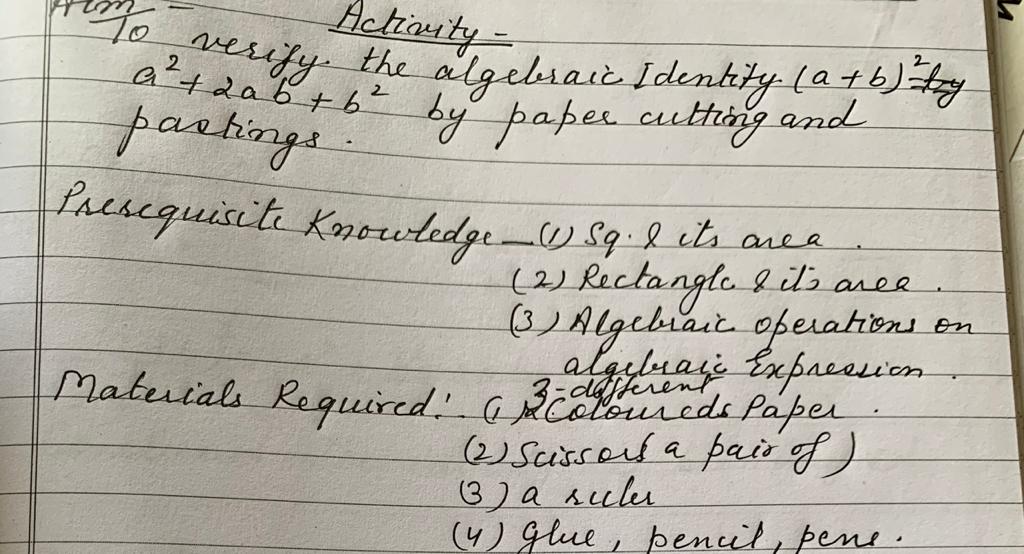 Activity -
Aim -
To verify the algebraic Identity (a + b)² = by
a² + 2ab + b² by paper cutting and
pastings.
Prerequisite Knowledge - (1) Sq. & its area.
(2) Rectangle & its area.
(3) Algebraic operations on
algebraic Expression.
3-different
Materials Required:. (1) 2 Coloureds Paper.
(2) Scissors a pair of)
(3) a ruler
(4) Glue, pencil, pens.